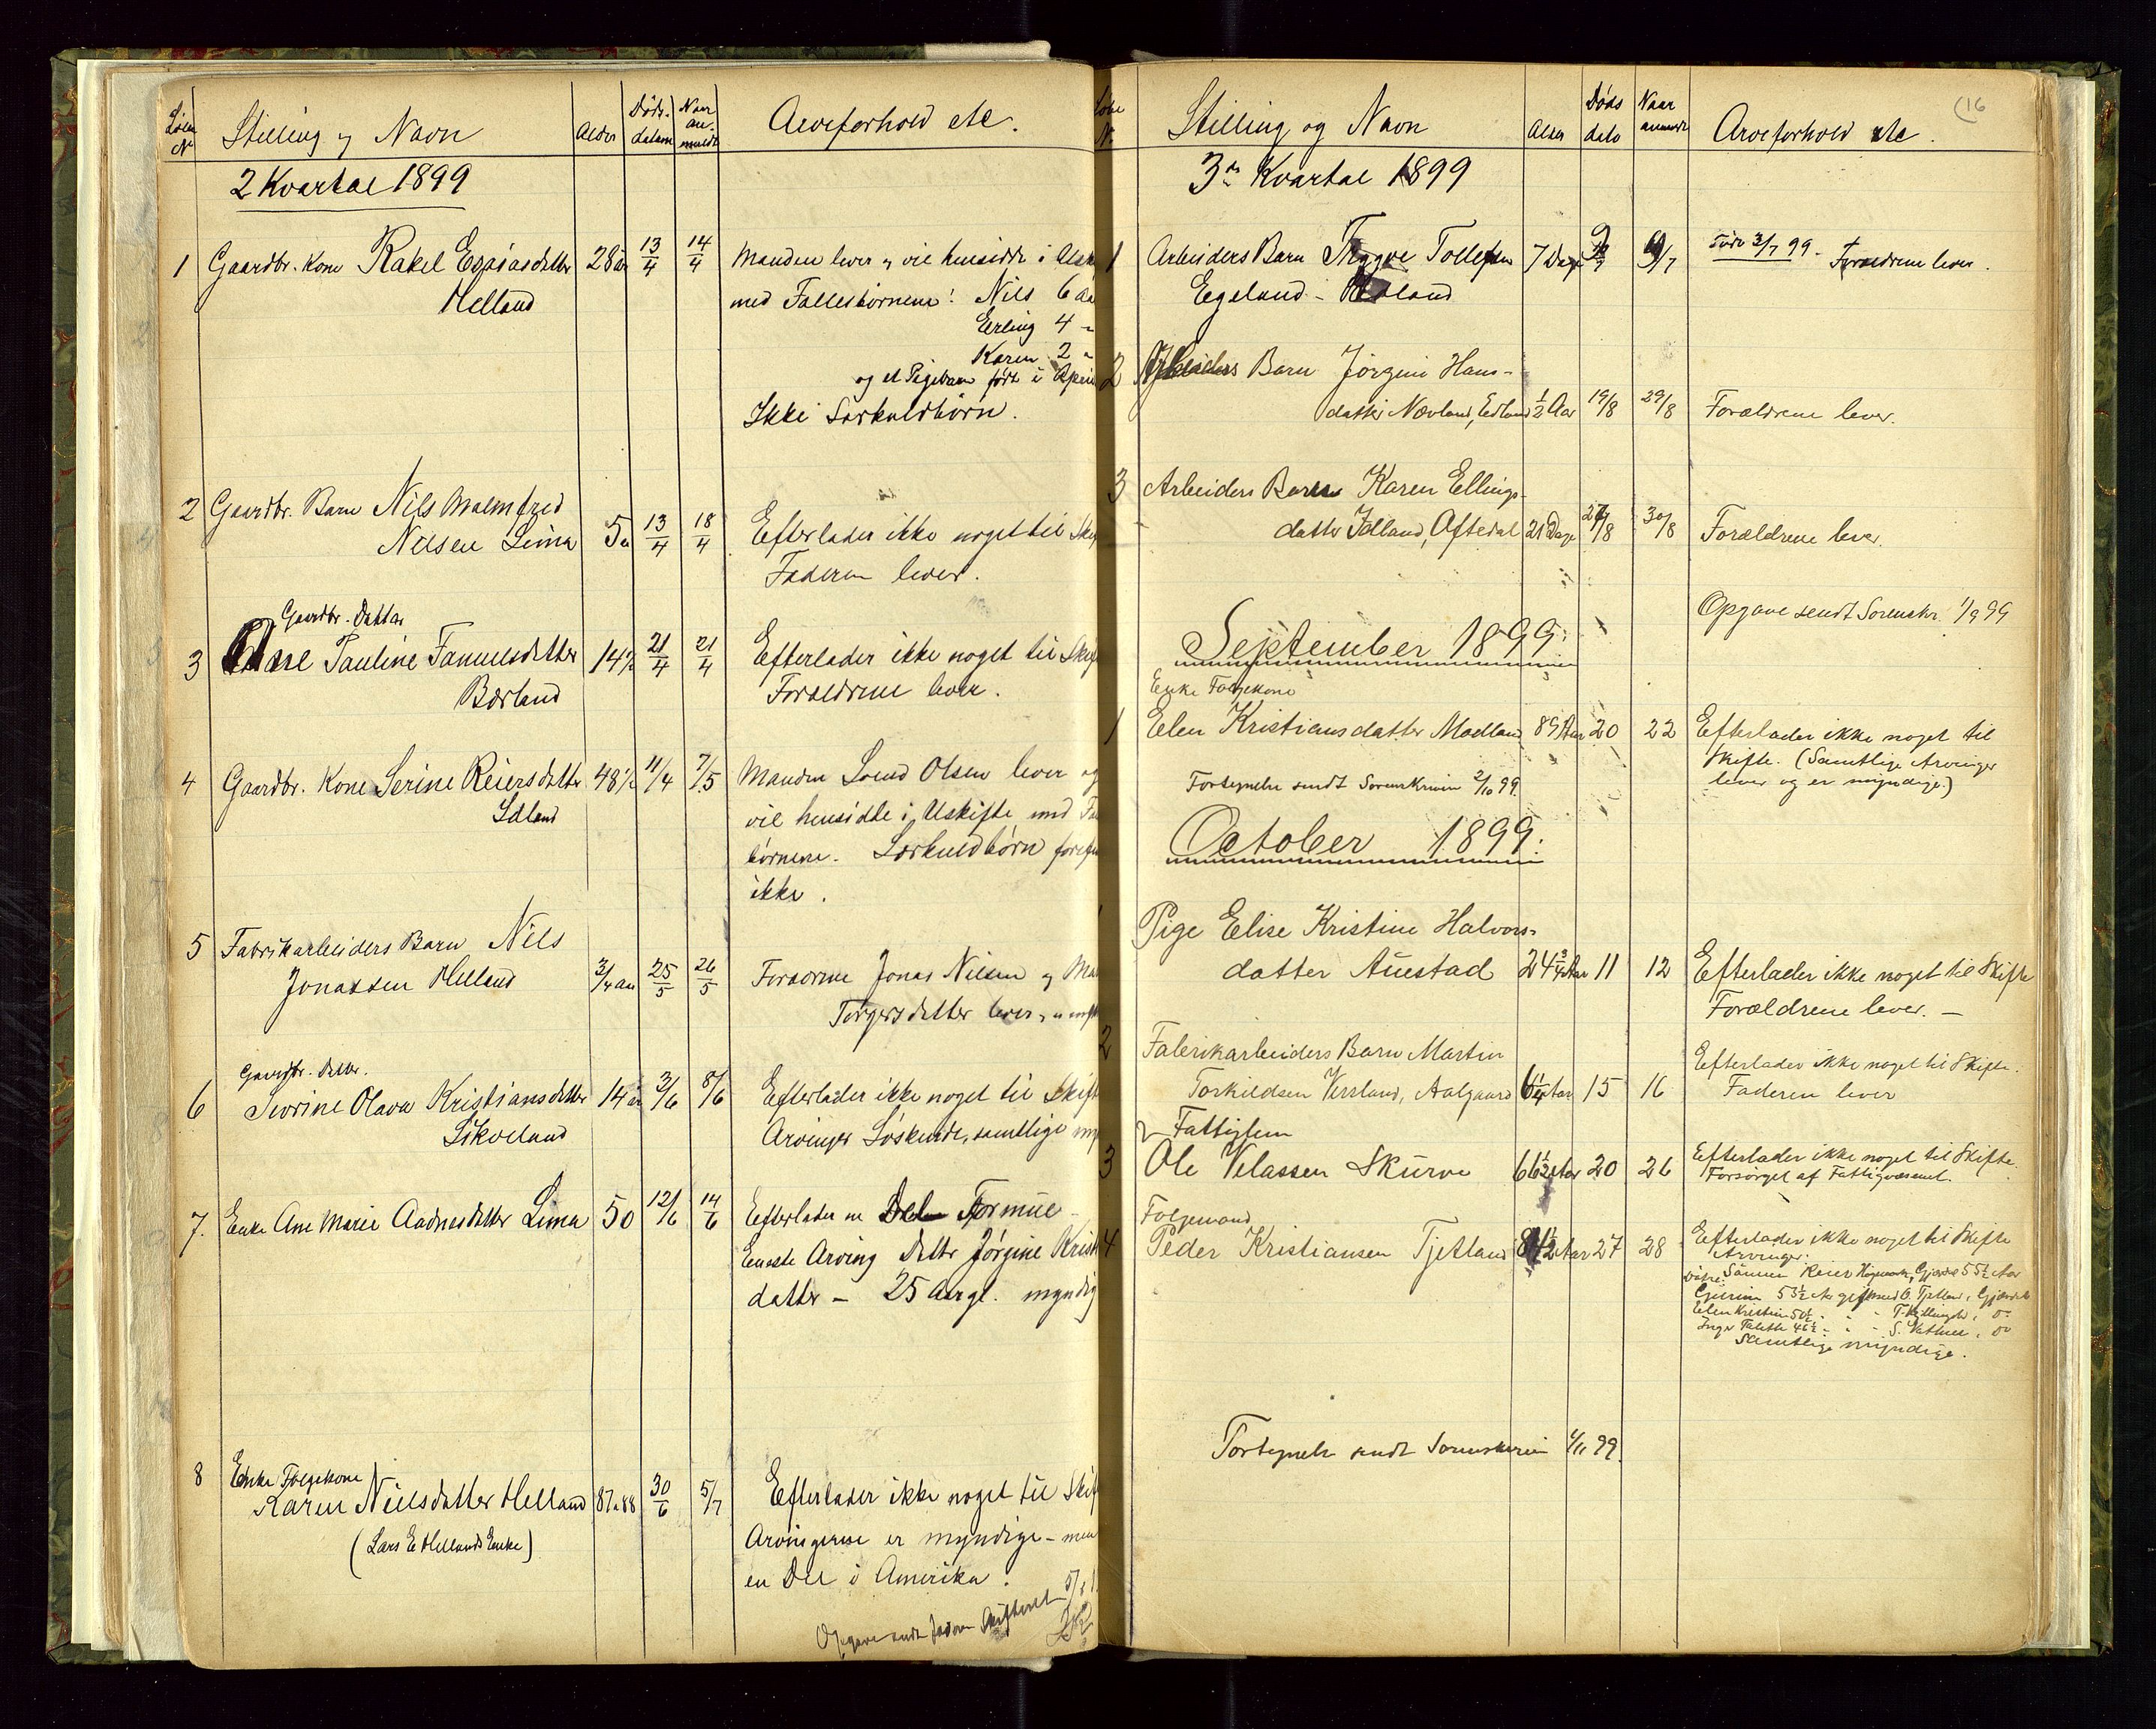 Løbe No
Stilling og Navn
Alder
Døds-datum
Naar an-meldt
Arveforhold etc.
2 Kvartal 1899
1 Gaardbr. Kone Rakel Esaiasdatter 28 år 13/4 14/4 Manden lever og vil hensidde i
Helland med Fællesbørnene: Nils 6
Erling 4 "
Karen 2 "
og et Pigebarn født i
Ikke Særkuldbørn.
2 Gaardbr. Barn Nils Malmfred
Nilsen Lima 5 13/4 18/4 Efterlader ikke noget til
Faderen lever.
Gaardbr. Datter
3 Pauline 14½ 21/4 21/4 Efterlader ikke noget til
Bærland Forældrene lever.
4 Gaardbr. Kone Serine Reiersdatter 48½ 11/4 7/5 Manden Svend Olsen lever og
vil hensidde i Uskifte med
børnene. Særkuldbørn
ikke.
5 Fabrikarbeiders Barn Nils
Jonassen Helland 3/4 25/5 26/5 Jonas Nilsen og
Torgersdatter lever
Gaardbr. Datter.
6 Sivrine Olava Kristiansdatter 14 3/6 8/6 Efterlader ikke noget til
Arvinger Søskende, samtlige
7. Enke Ane Marie Aadnesdatter Lima 50 12/6 14/6 Efterlader en Del Formue
Eneste Arving Datter Jørgine
datter – 25 Aar gl.
8 Enke Følgekone
Karen Nielsdatter Helland 87 a 88 30/6 5/7 Efterlader ikke noget til
(Lars E Hellands Enke) Arvingerne er myndige – men
en Del i Amerika.
Løbe N.
Stilling og Navn
Alder
Døds dato
Naar anmeldt
Arveforhold etc.
(16
3die Kvartal 1899
1 Arbeiders Barn Trygve Tollefsen 7 Dage 9/7 Født 3/7 99 - Forældrene lever.
Egeland -
2 Arbeiders Barn Jørgine Hans-
datter Nævland, 1/2 Aar 19/8 29/8 Forældrene lever.
3 Arbeiders Barn Karen Ellings-
datter Idland, Oftedal 21 Dage 27/8 30/8 Forældrene lever.
Opgave sendt Sorenskr. 1/9 99
September 1899:
Enke Følgekone
1 Elen Kristiansdatter Madland 89 Aar 20 22 Efterlader ikke noget til
Skifte. (Samtlige Arvinger
lever og er myndige.)
Fortegnelse sendt Sorenskriveren 2/10 99.
October 1899:
Pige Elise Kristine Halvors-
datter Auestad 24 3/4 Aar 11 12 Efterlader ikke noget til Skifte
Forældrene lever. –
2 Fabrikarbeiders Barn Martin
Torkildsen Aalgaard 6 1/4 Aar 15 16 Efterlader ikke noget til Skifte.
Faderen lever
Fattiglem
3 Ole Velassen Skurve 66 1/2 Aar 20 26 Efterlader ikke noget til Skifte.
Forsørget af Fattigvæsenet.
Følgemand
4 Peder Kristiansen Tjetland 84 1/2 Aar 27 28 Efterlader ikke noget til Skifte
Arvinger:
Sønnen Reier 55½ Aar
53½
Elen Kristine 50½
46½
Samtlige myndige.
Fortegnelse sendt Sorenskriveren 1/11 99.